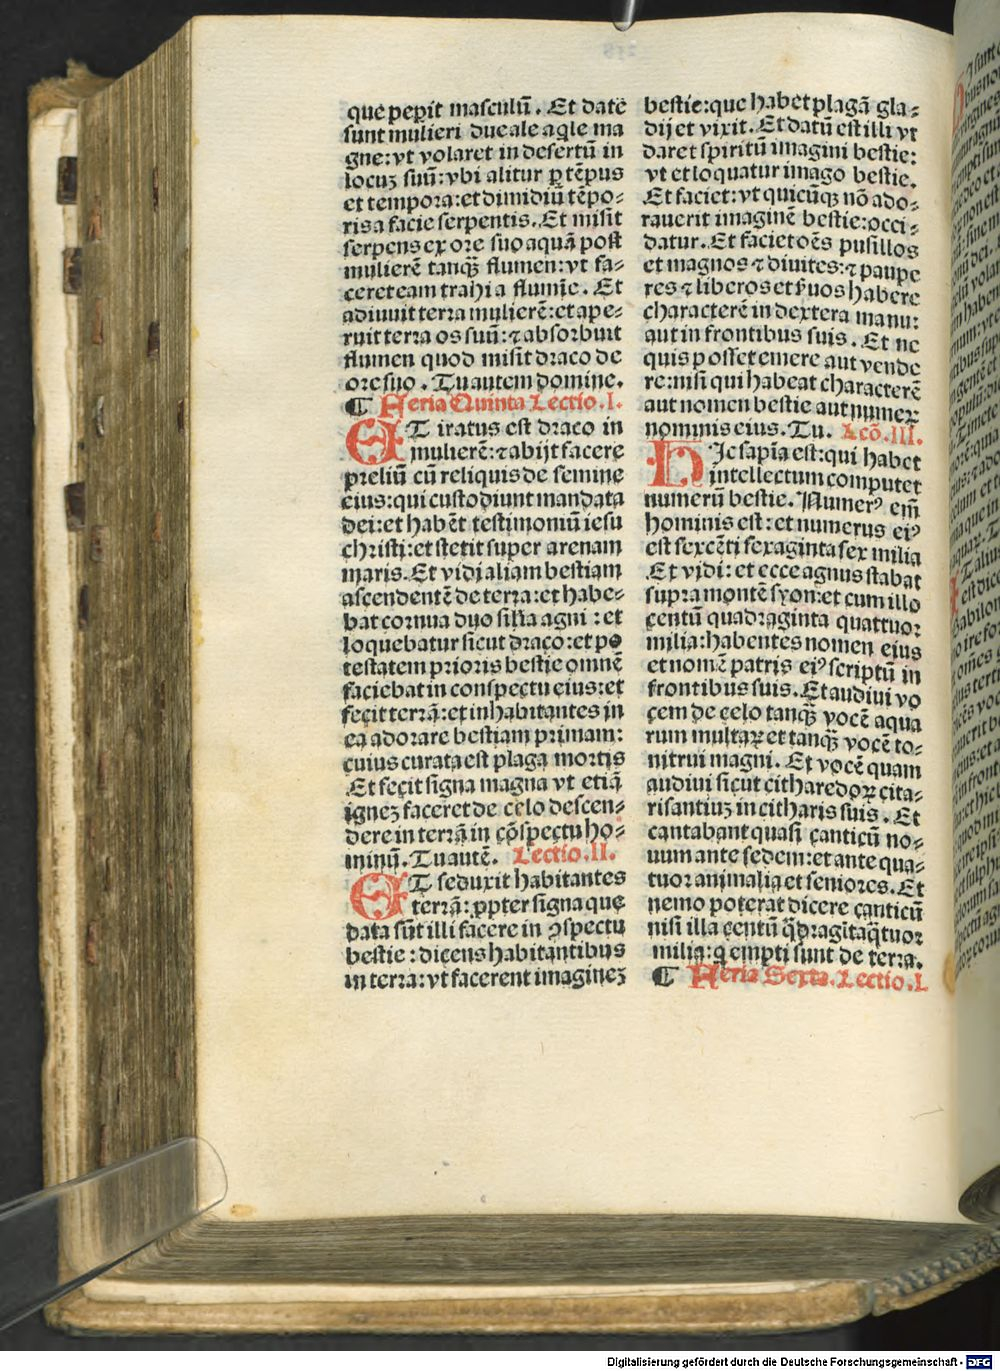 que peꝑit masculū. Et date
sunt mulieri due ale aq̄le ma
gne: vt volaret in desertū in
locuȝ suū: vbi alitur ꝑ tēpus
et tempora: et dimidiū tēpo-
ris a facie serpentis. Et misit
serpens ex ore suo aquā post
mulierē tanqȝ̄ flumen: vt fa-
ceret eam trahi a flumīe. Et
adiuuit terra mulierē: et ape-
ruit terra os suū: ⁊ absorbuit
flumen quod misit draco de
ore suo. Tu autem domine.
¶ Feria Quinta Lectio .I.
ET iratus est draco in
mulierē: ⁊ abijt facere
preliū cū reliquis de semine
eius: qui custodiunt mandata
dei: et habēt testimoniū iesu
christi: et stetit super arenam
maris. Et vidi aliam bestiam
ascendentē de terra: et habe-
bat cornua duo sil̄ia agni: et
loquebatur sicut draco: et po
testatem prioris bestie omnē
faciebat in conspectu eius: et
fecit terrā: et inhabitantes in
ea adorare bestiam primam:
cuius curata est plaga mortis
Et fecit signa magna vt etiā
igneȝ faceret de celo descen-
dere in terrā in cōspectu ho-
minū. Tu autē. Lectio .II.
ET seduxit habitantes
terrā: ꝓpter signa que
data sūt illi facere in ꝯspectu
bestie: dicens habitantibus
in terra: vt facerent imagineȝ
bestie: que habet plagā gla-
dij et vixit. Et datū est illi vt
daret spiritū imagini bestie:
vt et loquatur imago bestie.
Et faciet: vt quicūqȝ nō ado-
rauerit imaginē bestie: occi-
datur. Et faciet oēs pusillos
et magnos ⁊ diuites: ⁊ paupe
res ⁊ liberos et ẜuos habere
characterē in dextera manu:
aut in frontibus suis. Et ne
quis possꝫ emere aut vende
re: nisi qui habeat characterē
aut nomen bestie aut numeꝝ
nominis eius. Tu. Lcō. III.
HIc sapīa est: qui habet
intellectum computet
numerū bestie. Numerꝰ em̄
hominis est: et numerus eiꝰ
est sexcēti sexaginta sex milia
Et vidi: et ecce agnus stabat
supra montē syon: et cum illo
centū quadraginta quattuor
milia: habentes nomen eius
et nomē patris eiꝰ scriptū in
frontibus suis. Et audiui vo
cem de celo tanqȝ̄ vocē aqua
rum multaꝝ et tanqȝ̄ vocē to-
nitrui magni. Et vocē quam
audiui sicut citharedoꝝ cita-
risantiuȝ in citharis suis. Et
cantabant quasi canticū no-
uum ante sedem: et ante qua-
tuor animalia et seniores. Et
nemo poterat dicere canticū
nisi illa centū q̄dragīta q̄tuor
milia: q̄ empti sunt de terra.
¶ Feria Sexta. Lectio .I.
Digitalisierung gefördert durch die Deutsche Forschungsgemeinschaft - DFG